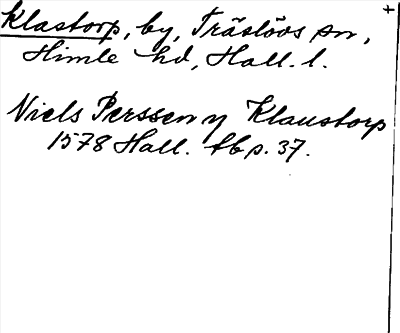 Klastorp, by, Träslövs sn,
Himle hd, Hall. l.
Niels Perssen y Klaustorp
1578 Hall. tb p. 37.